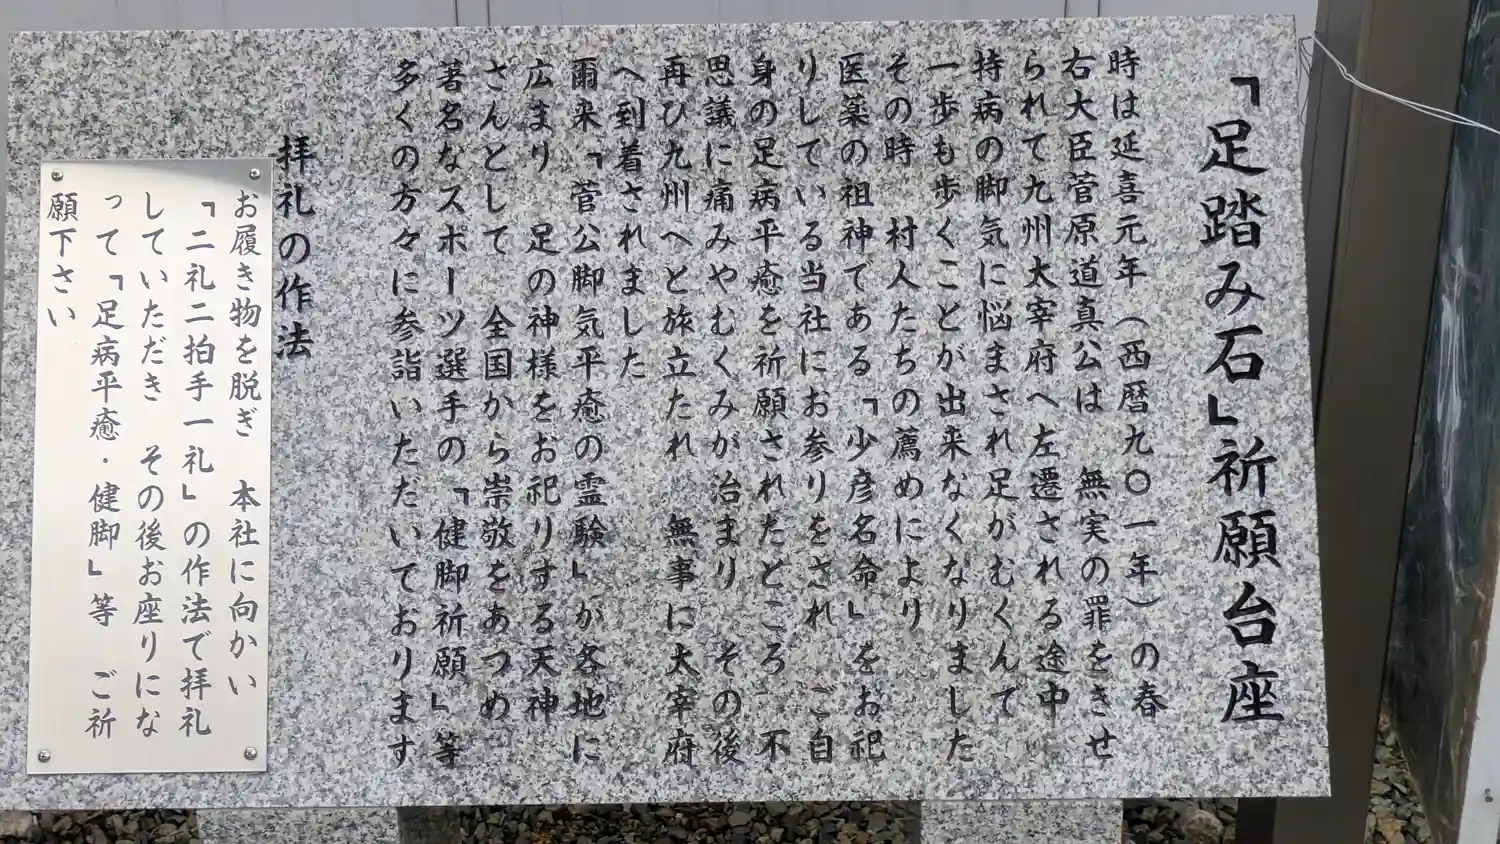 「足踏み石」祈願台座
時は延喜元年（西暦九〇一年）の春
右大臣菅原道真公は　無実の罪をきせ
られて九州太宰府へ左遷される途中
持病の脚気に悩まされ足がむくんで
一歩も歩くことが出来なくなりました
その時　村人たちの薦めにより
医薬の祖神である「少彦名命」をお祀
りしている当社にお参りをされ　ご自
身の足病平癒を祈願されたところ　不
思議に痛みやむくみが治まり　その後
再び九州へと旅立たれ　無事に太宰府
へ到着されました
爾来「菅公脚気平癒の霊験」が各地に
広まり　足の神様をお祀りする天神
さんとして　全国から崇敬をあつめ
著名なスポーツ選手の「健脚祈願」等
多くの方々に参詣いただいております
拝礼の作法
お履き物を脱ぎ　本社に向かい
「二礼二拍手一礼」の作法で拝礼
していただき　その後お座りにな
って「足病平癒・健脚」等　ご祈
願下さい